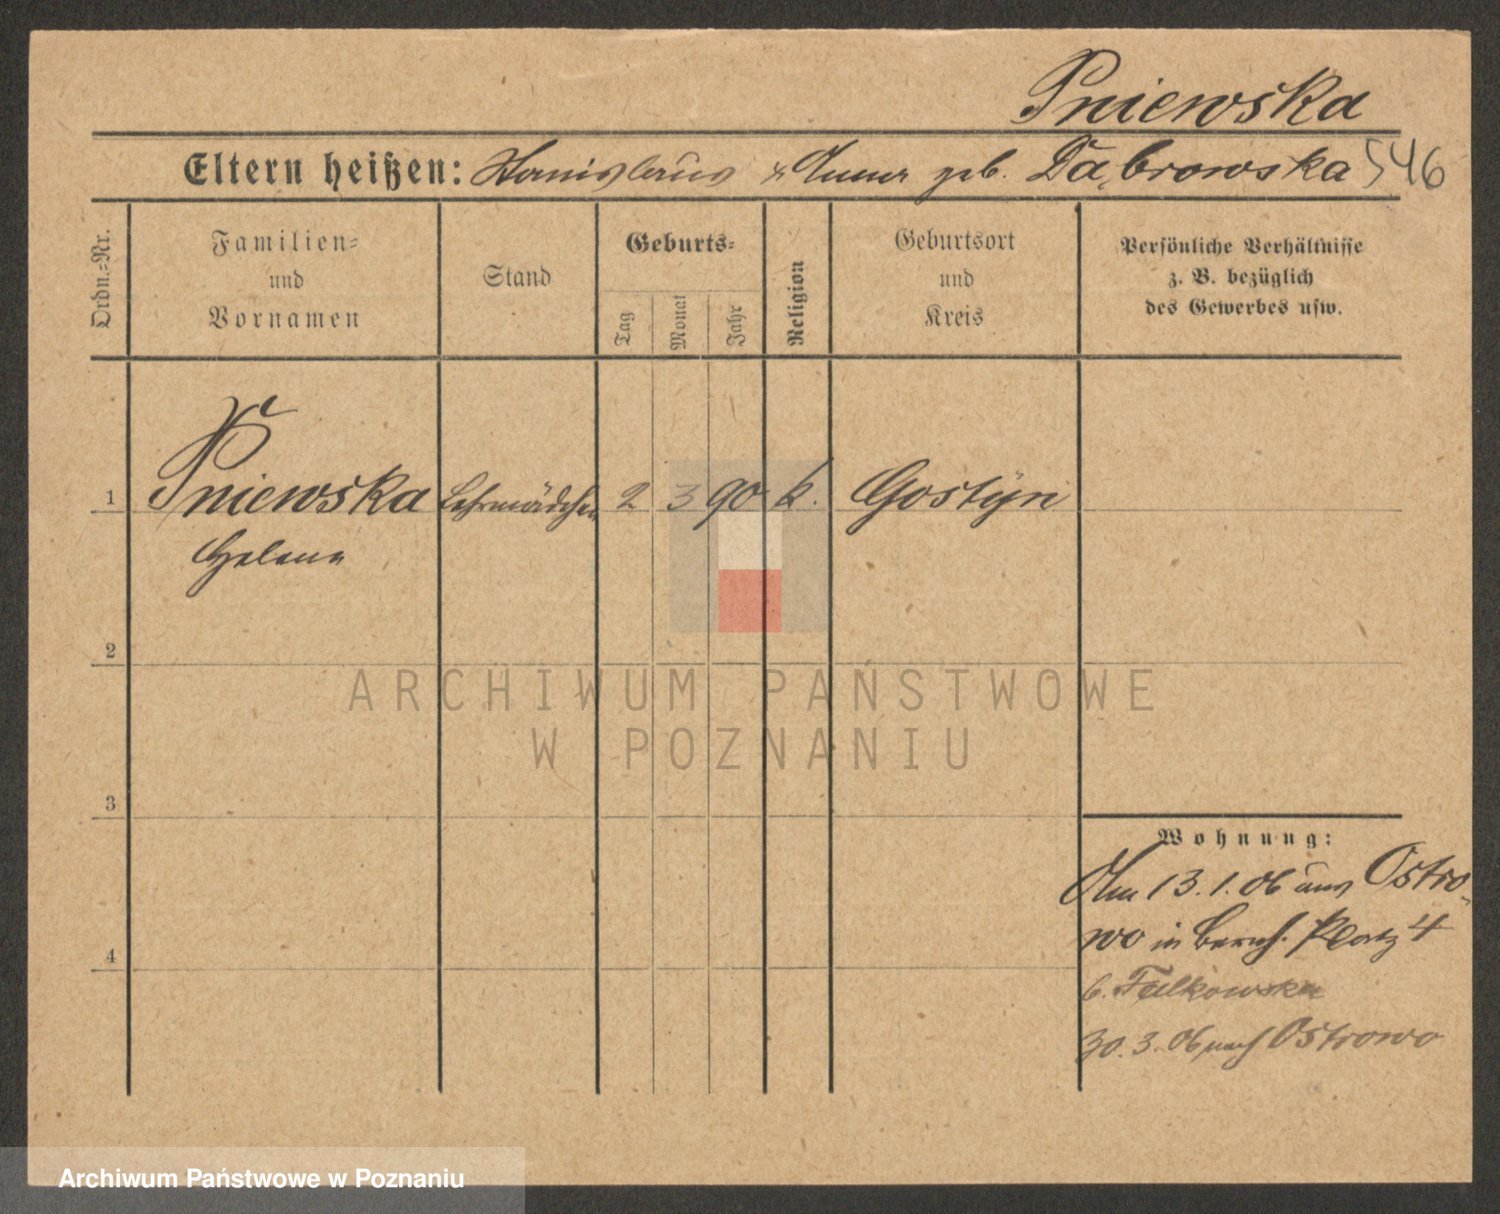 Pniewska
Eltern heißen: Stanislaus & Anna geb. Dąbrowska 546
Ordn.-Nr.
Familien-
und
Vornamen
Stand
Geburts-
Tag
Monat
Jahr
Religion
Geburtsort
und
Kreis
Persönliche Verhältnisse
z. B. bezüglich
des Gewerbes usw.
1 Pniewska Lehrmädchen 2 3 90 k. Gostÿn
Helene
2
ARCHIWUM PAŃSTWOWE
W POZNANIU
3
Wohnung:
Am 13.1.06 aus Ostro-
wo in Platz 4
4
b. Falkowska
30.3.06 nach Ostrowo
Archiwum Państwowe w Poznaniu